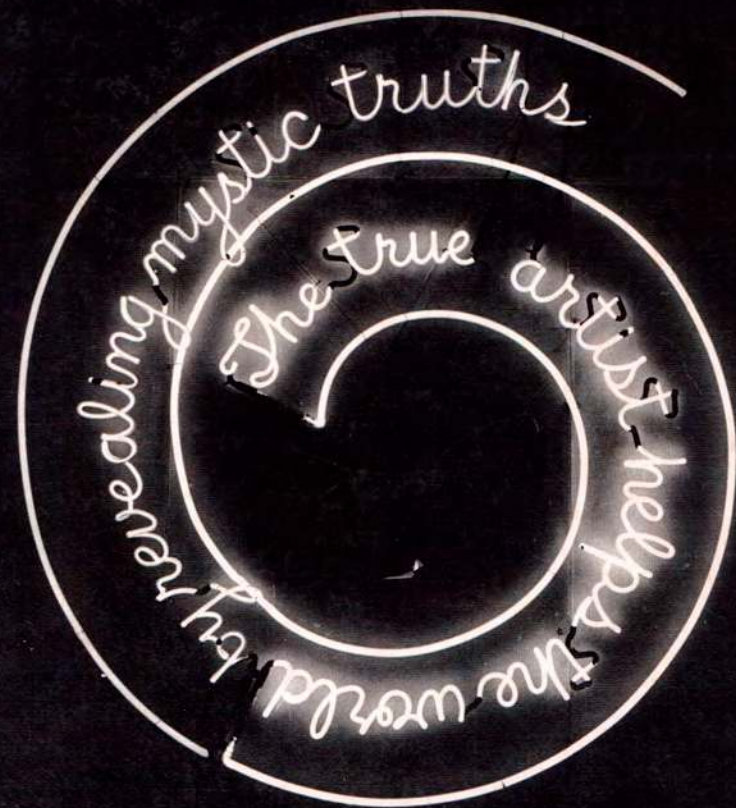 The true artist helps the world by revealing mystic truths